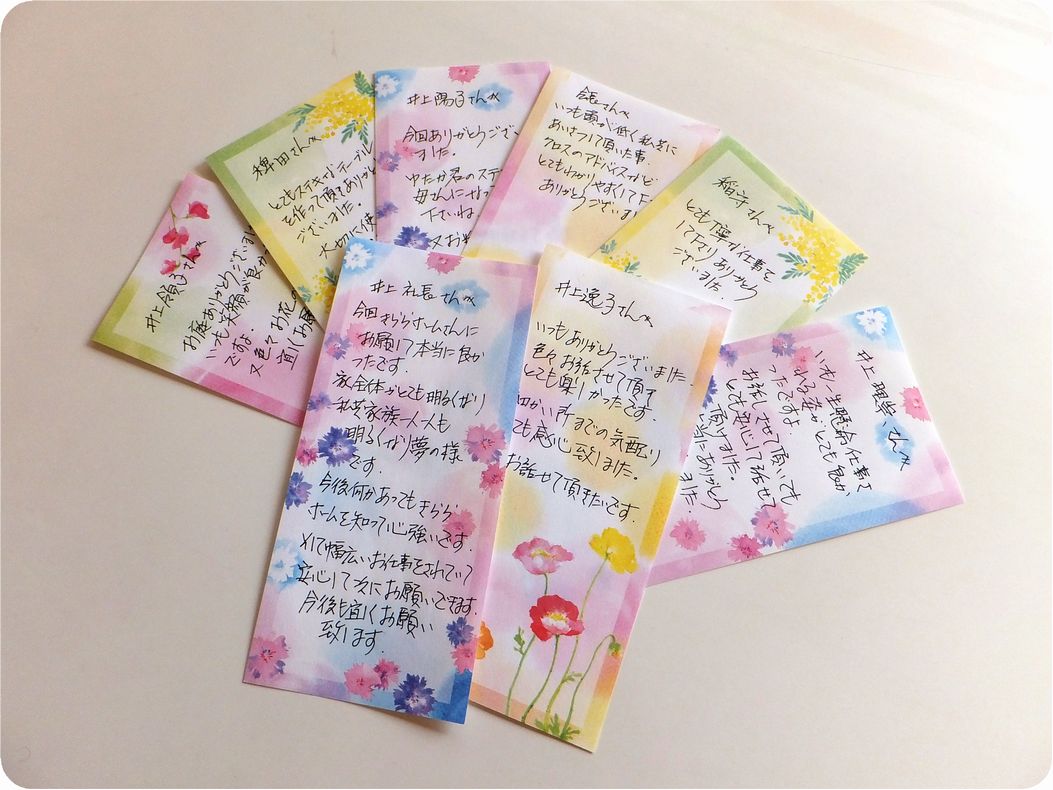 井上領子さんへ
お庭ありがとうございまし
いつも笑顔が良か
ですよ。
又色々お花の
宜しくお願
稗田さんへ
とてもステキなテーブル
を作って頂きありがと
ございました。
大切に使
井上陽子さんへ
今回ありがとうござい
ました。
ゆたか君のステ
母さんになっ
下さいね
又お
会長さんへ
いつも頭が低く私共に
あいさつして頂いた事.
クロスのアドバイスなど
とてもわかりやすくて
ありがとうございまし
稲守さんへ
とても丁寧な仕事を
して下さりありがとう
ございました。
井上社長さんへ
今回きららホームさんに
お願いして本当に良か
ったです。
家全体がとても明るくなり
私共家族一人一人も
明るくなり夢の様
です。
今後何かあってもきらら
ホームを知って心強いです.
そして幅広いお仕事をされていて
安心して次にお願いできます.
今後も宜しくお願い
致します.
井上逸子さんへ
いつもありがとうございました.
色々お話させて頂き
とても楽しかったです
細かい所までの気配り
ても感心致しました.
お話せて頂きたいです.
井上理単、さんへ
いつも一生懸命仕事を
れる姿がとても良か
ったですよ.
お話しさせて頂いても
とても安心して話せて
頂けました.
当にありがとう
ました.